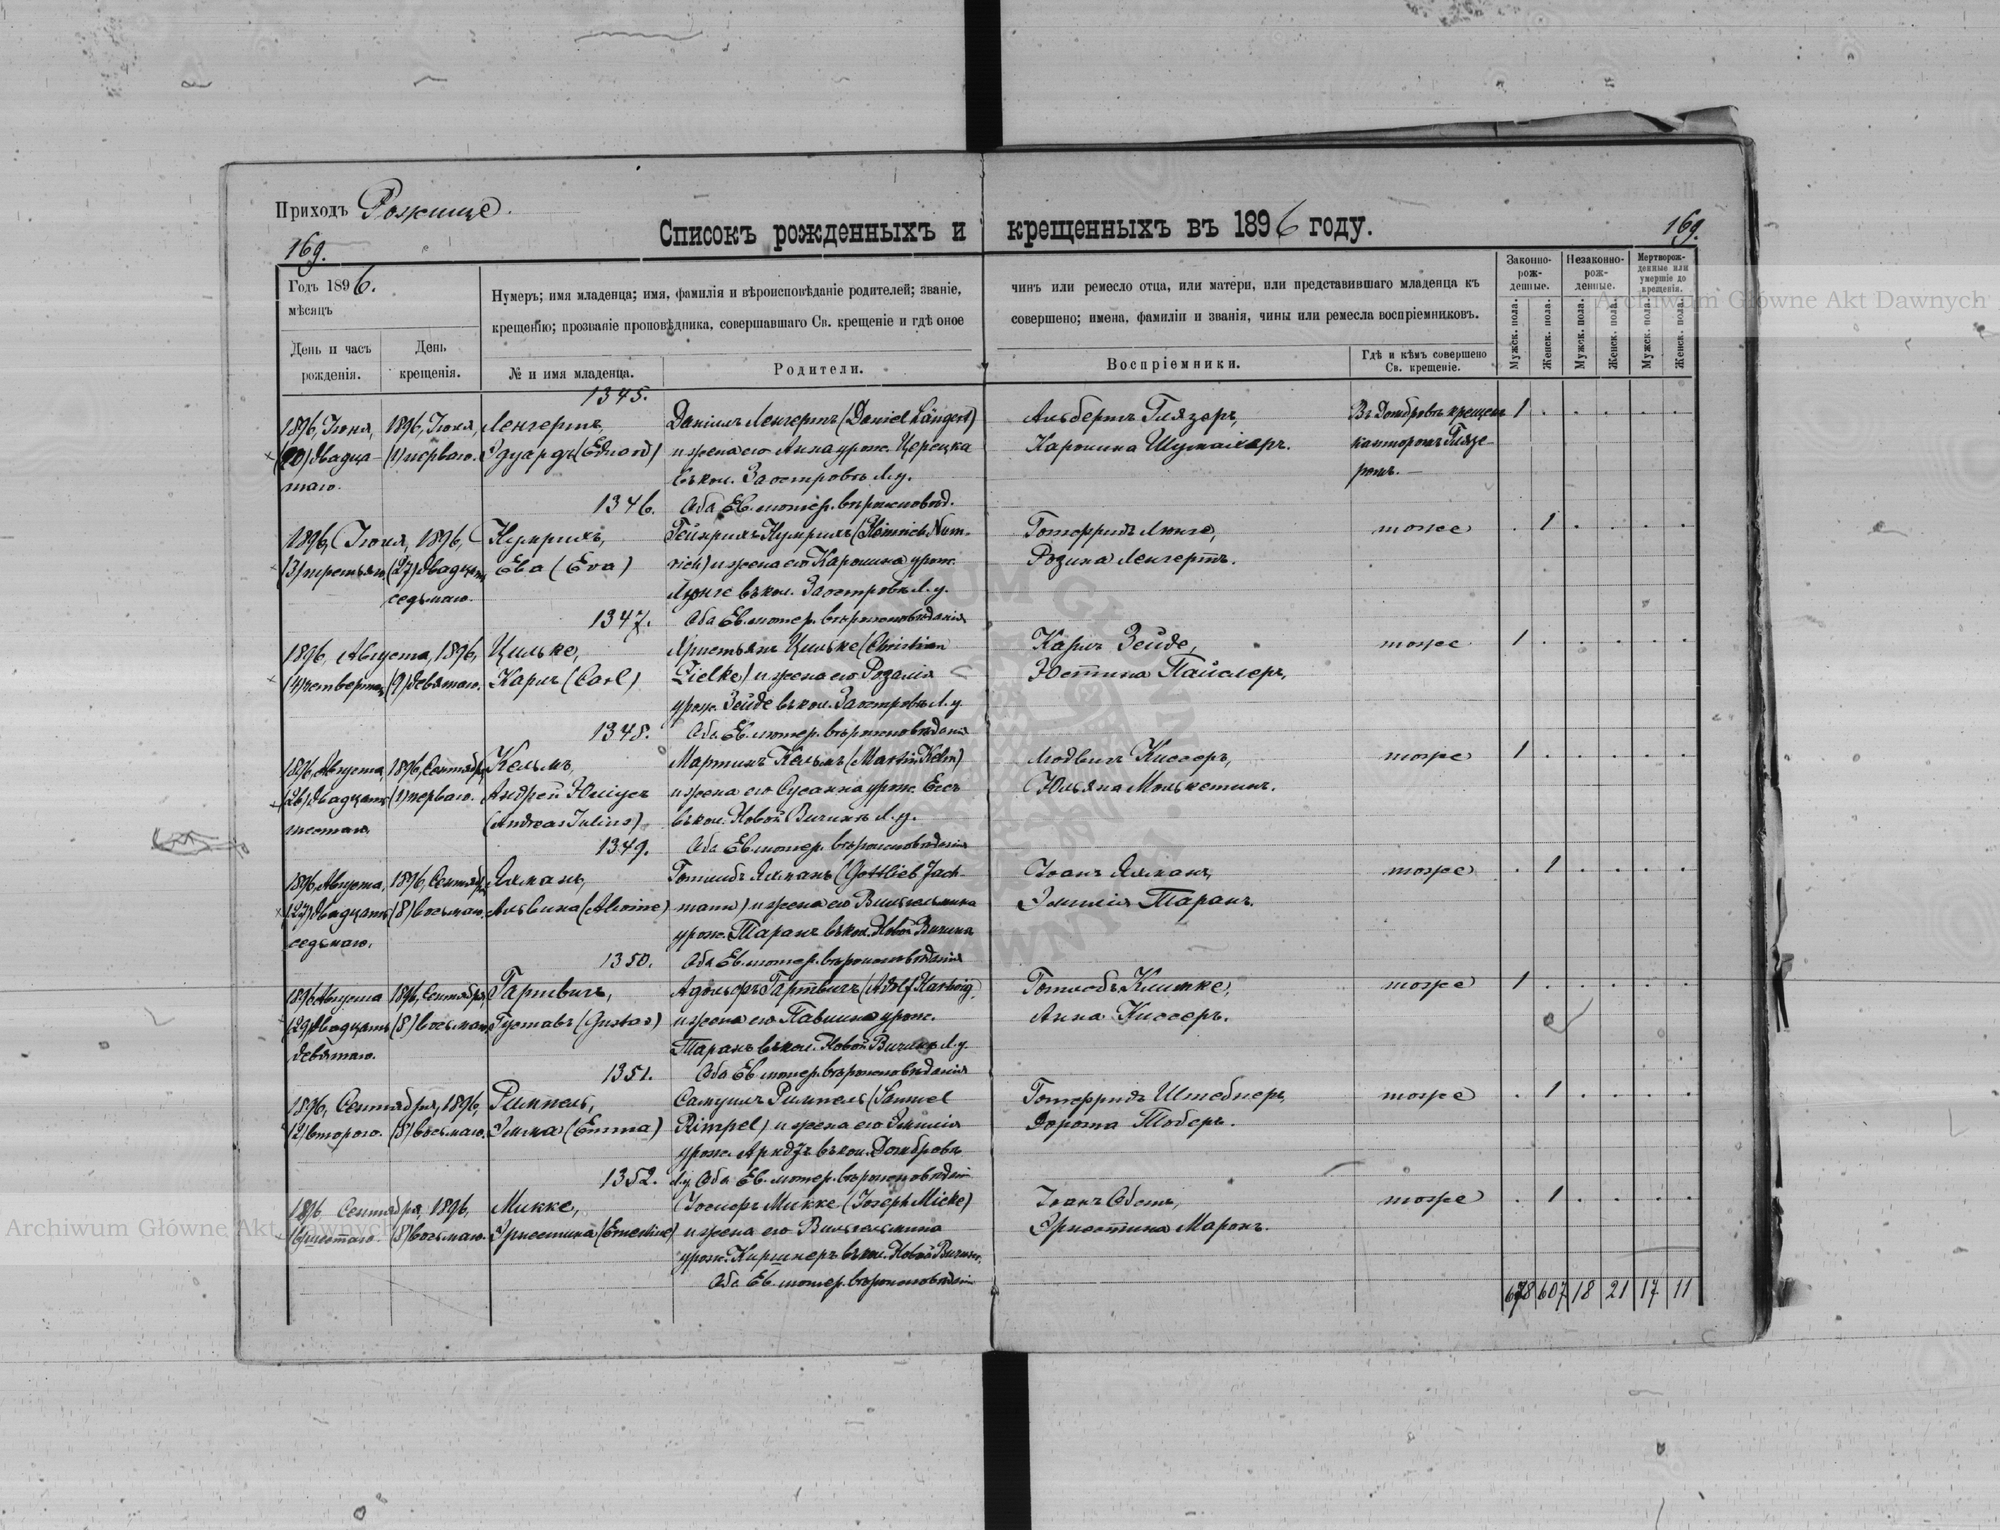 Приходъ Рожище.
Списокъ рожденныхъ и крещенныхъ въ 1896 году.
169.
169.
Годъ 1896.
мѣсяцъ
День и часъ рожденія.
День крещенія.
Нумеръ; имя младенца; имя, фамилія и вѣроисповѣданіе родителей; званіе, чинъ или ремесло отца, или матери, или представившаго младенца къ
крещенію; прозваніе проповѣдника, совершавшаго Св. крещеніе и гдѣ оное совершено; имена, фамиліи и званія, чины или ремесла воспріемниковъ.
№ и имя младенца.
Родители.
Воспріемники.
Гдѣ и кѣмъ совершено Св. крещеніе.
Законно-рож-денные.
Незаконно-рож-денные.
Мертворож-денные или умершіе до крещенія.
Мужск. пола.
Женск. пола.
Мужск. пола.
Женск. пола.
Мужск. пола.
Женск. пола.
Archiwum Główne Akt Dawnych
1345.
1896, Іюня, 1896, Іюля, Ленгертъ, Даніилъ Ленгертъ (Daniel Längert) Альбертъ Глязеръ, Въ Домбровѣ крещенъ 1
(20) двадца- (1) перваго. Эдуардъ (Eduard) и жена его Анна урож. Церецка Каролина Шумахеръ. канторомъ Глязе-
таго. въ кол. Заостровѣ Л.у. ромъ.
1346. Оба Ев. лютер. вѣроисповѣд.
1896, Іюня, 1896, Нумрихъ, Гейнрихъ Нумрихъ (Heinrich Num- Готфридъ Люнге, тоже 1
(3) третьяго (27) двадцать Ева (Eva) rich) и жена его Каролина урож. Розина Ленгертъ.
седьмаго. Люнге въ кол. Заостровѣ Л.у.
1347. Оба Ев. лютер. вѣроисповѣданія
1896, Августа, 1896, Цильке, Христьянъ Цильке (Christian Карлъ Зейде, тоже 1
(4) четвертаго (9) девятаго. Карлъ (Carl) Zielke) и жена его Розалія Юстина Пайслеръ,
урож. Зейде въ кол. Заостровѣ Л.у.
1348. Оба Ев. лютер. вѣроисповѣданія
1896, Августа, 1896, Сентября Кельмъ, Мартинъ Кельмъ (Martin Kelm) Людвигъ Киссеръ, тоже 1
(26) двадцать (1) перваго. Андрей Юліусъ и жена его Сусанна урож. Юльяна
шестаго (Andreas Julius) въ кол. Новой Вичинѣ Л.у.
1349. Оба Ев. лютер. вѣроисповѣданія
1896, Августа, 1896, Сентября Яхманъ, Готлибъ Яхманъ (Gottlieb Jach- Іоанъ Яхманъ, тоже 1
(27) двадцать (8) восьмаго Альвина (Alwine) mann) и жена его Вильгельмина Эмилія Таранъ.
седьмаго. урож. Таранъ въ кол. Новой Вичинѣ
1350. Оба Ев. лютер. вѣроисповѣданія
1896 Августа 1896, Сентября Гартвигъ, Адольфъ Гартвигъ (Adolf Hartwig) Готлобъ Климке, тоже 1
(29) двадцать (8) восьмаго Густавъ (Gustav) и жена его Павлина урож. Анна Киссеръ.
девятаго. Таранъ въ кол. Новой Вичинѣ Л.у.
1351. Оба Ев. лютер. вѣроисповѣданія
1896, Сентября, 1896, Римпель, Самуилъ Римпель (Samuel Готфридъ Штебнеръ, тоже 1
(2) второго. (8) восьмаго. Эмма (Emma) Rimpel) и жена его Эмилія Дорота Тоберъ.
урож. Арндтъ въ кол. Домбровѣ
1352. Л.у. Оба Ев. лютер. вѣроисповѣданія
1896 Сентября, 1896, Микке, Іосифъ Микке (Joseph Micke) Іоанъ тоже 1
(6) шестаго. (8) восьмаго. Эрнестина (Ernestine) и жена его Вильгельмина Эрнестина
урож. Киршнеръ въ кол. Новой Вичинѣ.
Оба Ев. лютер. вѣроисповѣданія
678 607 18 21 17 11
Archiwum Główne Akt Dawnych